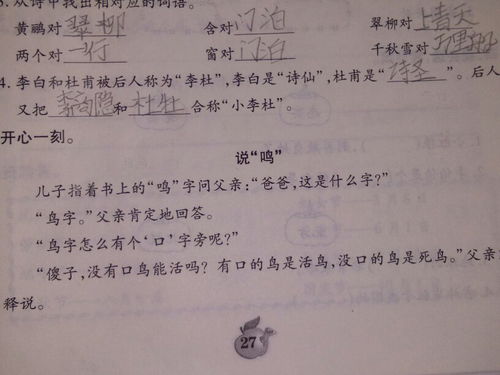 3. 从诗中找出相对应的词语。
黄鹂对 翠柳 含对 门泊 翠柳对 上青天
两个对 一行 窗对 门泊 千秋雪对
4. 李白和杜甫被后人称为“李杜”，李白是“诗仙”，杜甫是“诗圣”。后人
又把 李商隐 和 杜牡 合称“小李杜”。
开心一刻。
说“鸣”
儿子指着书上的“鸣”字问父亲：“爸爸，这是什么字？”
“鸟字。”父亲肯定地回答。
“鸟字怎么有个‘口’字旁呢？”
“傻子，没有口鸟能活吗？有口的鸟是活鸟，没口的鸟是死鸟。”父亲
释说。
27